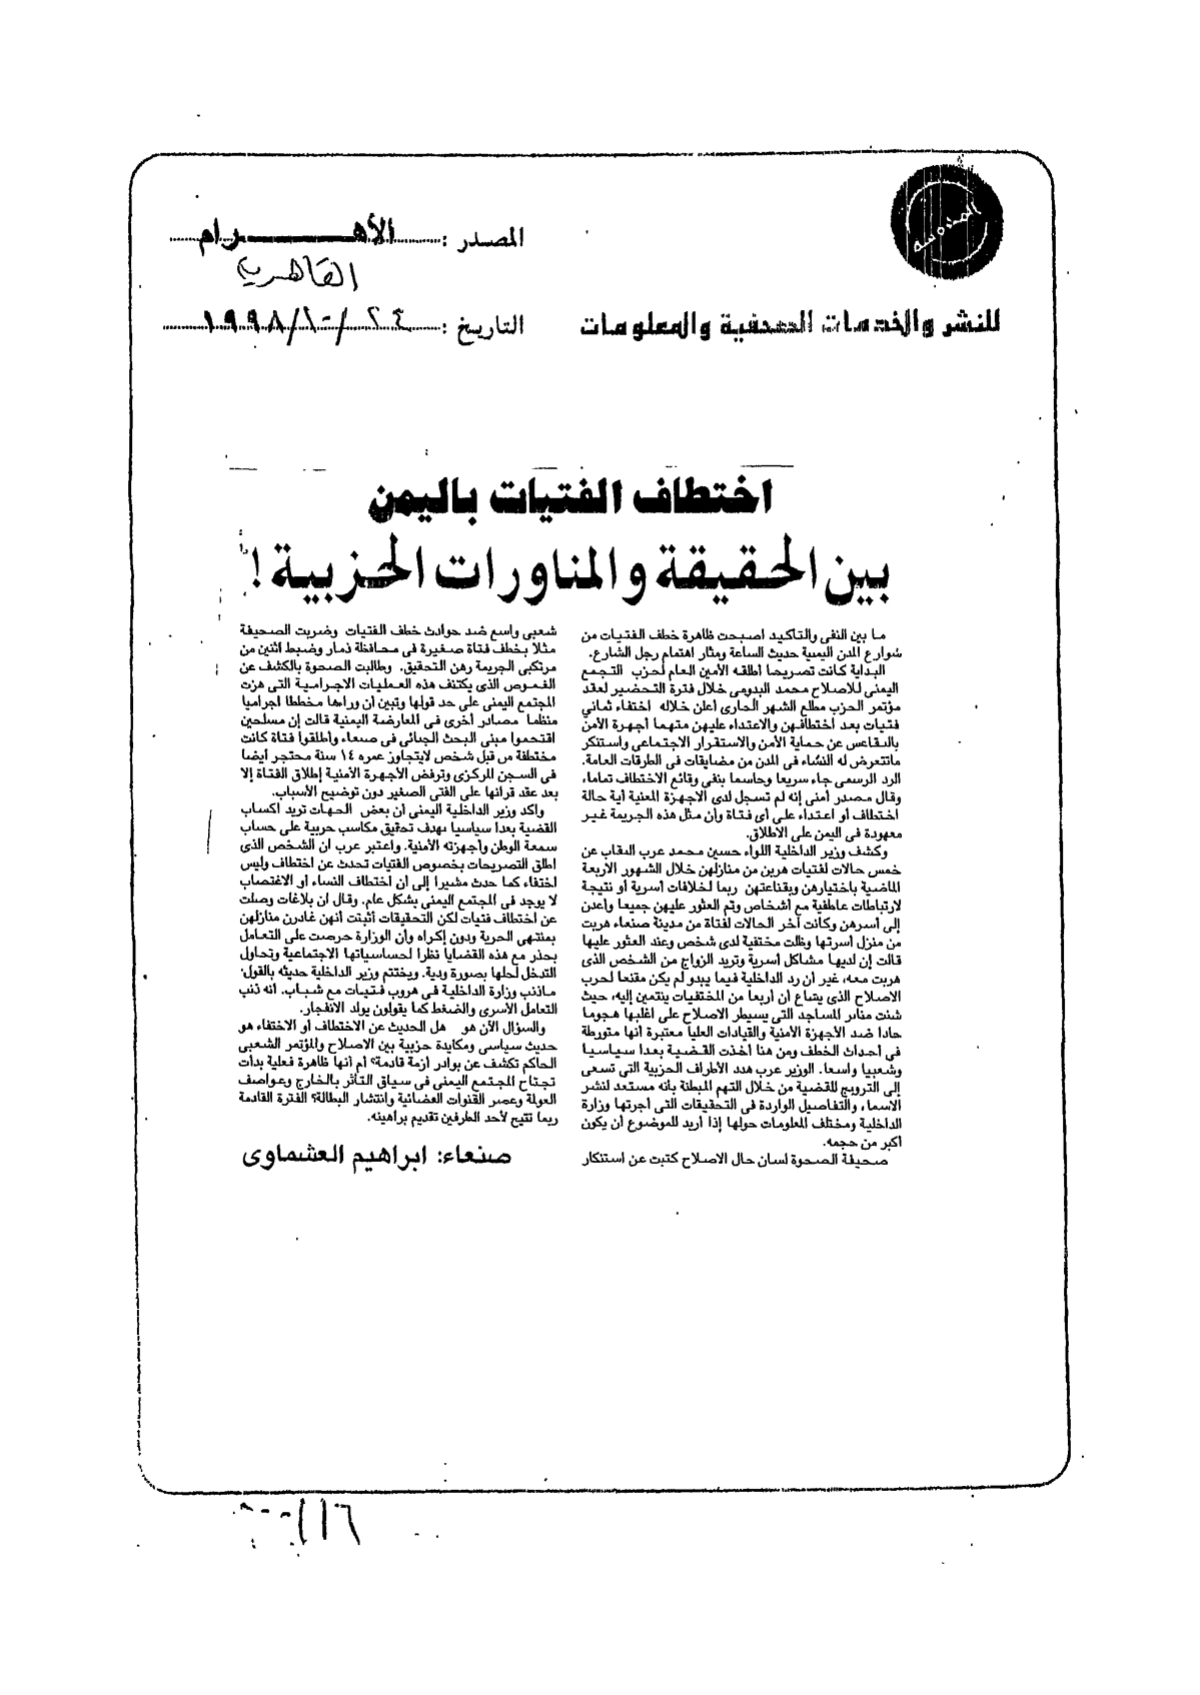 المدوسة
المصدر : الأهـــرام
القاهرية
للنشر والخدمات الصحفية والمعلومات
التاريخ : ٢٤/١٠/١٩٩٨
اختطاف الفتيات باليمن
بين الحقيقة والمناورات الحزبية !
ما بين النفى والتاكيد اصبحت ظاهرة خطف الفتيات من
شوارع المدن اليمنية حديث الساعة ومثار اهتمام رجل الشارع.
البداية كانت تصريحا اطلقه الأمين العام لحزب التجمع
اليمنى للاصلاح محمد اليدومى خلال فترة التحضير لعقد
مؤتمر الحزب مطلع الشهر الجارى اعلن خلاله اختفاء ثمانى
فتيات بعد اختطافهن والاعتداء عليهن متهما أجهزة الأمن
بالتقاعس عن حماية الأمن والاستقرار الاجتماعى واستنكر
ماتتعرض له النساء فى المدن من مضايقات فى الطرقات العامة.
الرد الرسمى جاء سريعا وحاسما بنفى وقائع الاختطاف تماما،
وقال مصدر امنى إنه لم تسجل لدى الاجهزة المعنية أية حالة
اختطاف او اعتداء على أى فتاة وإن مثل هذه الجريمة غير
معهودة فى اليمن على الاطلاق.
وكشف وزير الداخلية اللواء حسين محمد عرب النقاب عن
خمس حالات لفتيات هربن من منازلهن خلال الشهور الأربعة
الماضية باختيارهن وبقناعتهن ربما لخلافات أسرية أو نتيجة
لارتباطات عاطفية مع اشخاص وتم العثور عليهن جميعا واعدن
إلى أسرهن وكانت آخر الحالات لفتاة من مدينة صنعاء هربت
من منزل أسرتها وظلت مختفية لدى شخص وعند العثور عليها
قالت إن لديها مشاكل أسرية وتريد الزواج من الشخص الذى
هربت معه، غير أن رد الداخلية فيما يبدو لم يكن مقنعا لحزب
الاصلاح الذى يشاع ان أربعا من المختفيات ينتمين إليه، حيث
شنت منابر المساجد التى يسيطر الاصلاح على اغلبها هجوما
حادا ضد الأجهزة الأمنية والقيادات العليا معتبرة أنها متورطة
فى أحداث الخطف ومن هنا أخذت القضية بعدا سياسيا
وشعبيا واسعا. الوزير عرب هدد الأطراف الحزبية التى تسعى
إلى الترويج للقضية من خلال التهم المبطنة بأنه مستعد لنشر
الاسماء والتفاصيل الواردة فى التحقيقات التى أجرتها وزارة
الداخلية ومختلف المعلومات حولها إذا أريد للموضوع أن يكون
اكبر من حجمه.
صحيفة الصحوة لسان حال الاصلاح كتبت عن استنكار
شعبى واسع ضد حوادث خطف الفتيات وضربت الصحيفة
مثلا بخطف فتاة صغيرة فى محافظة ذمار وضبط اثنين من
مرتكبى الجريمة رهن التحقيق. وطالبت الصحوة بالكشف عن
الغموض الذى يكتنف هذه العمليات الاجرامية التى هزت
المجتمع اليمنى على حد قولها وتبين أن وراءها مخططا اجراميا
منظما مصادر أخرى فى المعارضة اليمنية قالت إن مسلحين
اقتحموا مبنى البحث الجنائى فى صنعاء وأطلقوا فتاة كانت
مختطفة من قبل شخص لايتجاوز عمره ١٤ سنة محتجز أيضا
فى السجن المركزى وترفض الأجهزة الأمنية إطلاق الفتاة إلا
بعد عقد قرانها على الفتى الصغير دون توضيح الأسباب.
واكد وزير الداخلية اليمنى ان بعض الجهات تريد اكساب
القضية بعدا سياسيا بهدف تحقيق مكاسب حزبية على حساب
سمعة الوطن وأجهزته الأمنية. واعتبر عرب ان الشخص الذى
اطلق التصريحات بخصوص الفتيات تحدث عن اختطاف وليس
اختفاء كما حدث مشيرا إلى ان اختطاف النساء او الاغتصاب
لا يوجد فى المجتمع اليمنى بشكل عام. وقال ان بلاغات وصلت
عن اختطاف فتيات لكن التحقيقات أثبتت أنهن غادرن منازلهن
بمنتهى الحرية ودون إكراه وأن الوزارة حرصت على التعامل
بحذر مع هذه القضايا نظرا لحساسياتها الاجتماعية وتحاول
التدخل لحلها بصورة ودية. ويختتم وزير الداخلية حديثه بالقول:
ماذنب وزارة الداخلية فى هروب فتيات مع شباب. انه ذنب
التعامل الأسرى والضغط كما يقولون يولد الانفجار.
والسؤال الآن هو هل الحديث عن الاختطاف أو الاختفاء هو
حديث سياسى ومكايدة حزبية بين الاصلاح والمؤتمر الشعبى
الحاكم تكشف عن بوادر ازمة قادمة؟ أم أنها ظاهرة فعلية بدأت
تجتاح المجتمع اليمنى فى سياق التأثر بالخارج وعواصف
العولة وعصر القنوات الفضائية وانتشار البطالة؟ الفترة القادمة
ربما تتيح لأحد الطرفين تقديم براهينه.
صنعاء: ابراهيم العشماوى